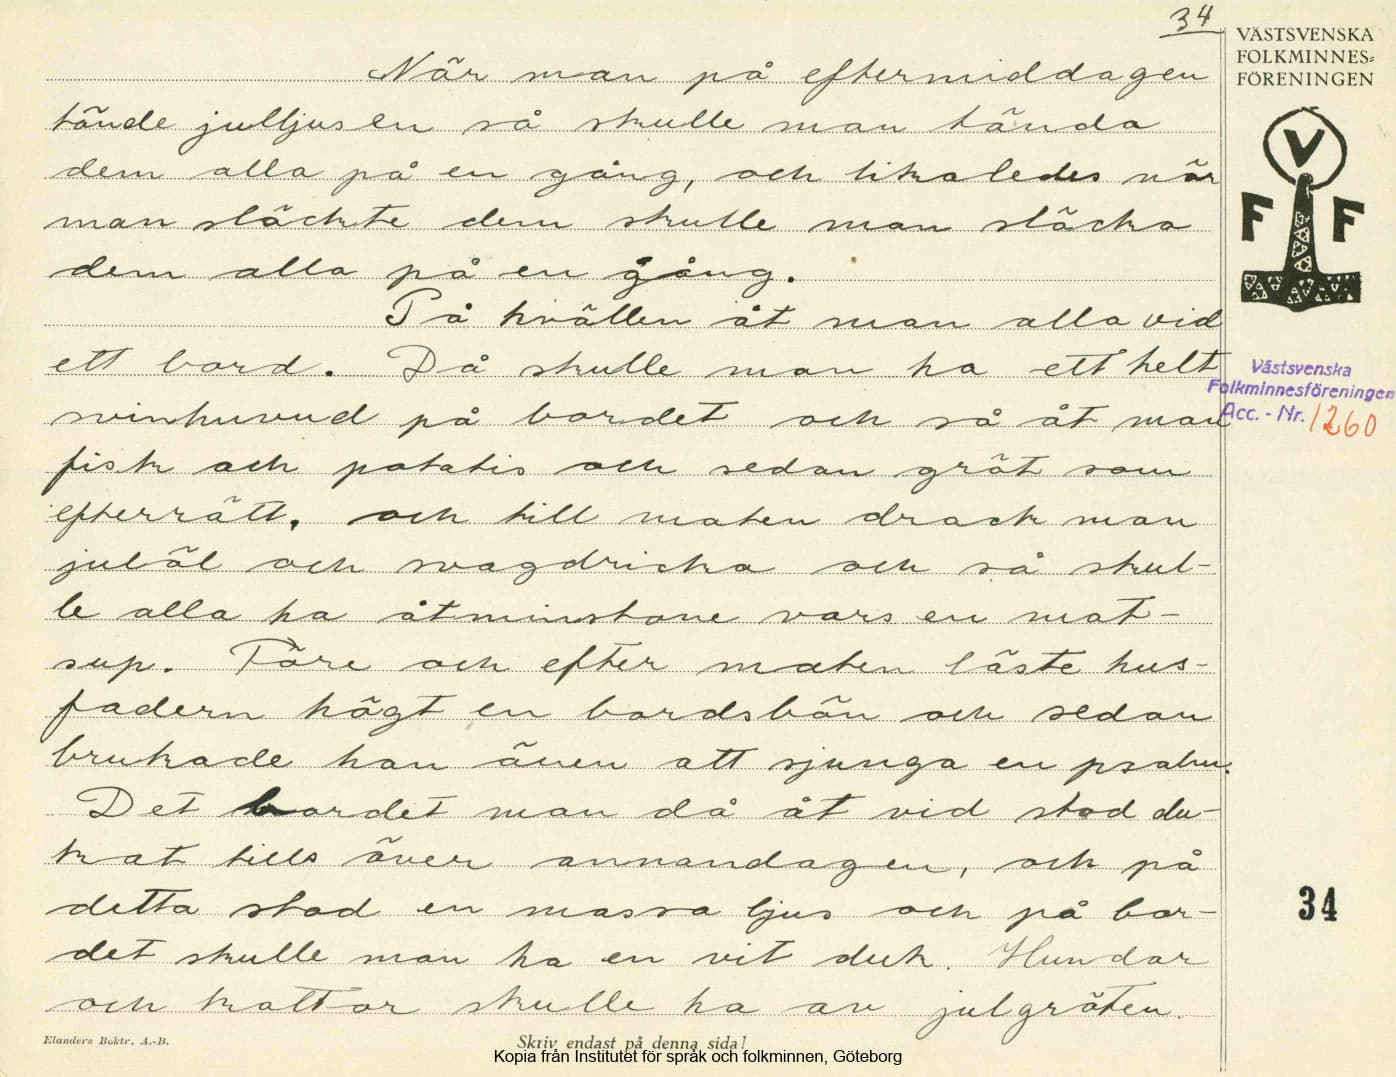 34
VÄSTSVENSKA
FOLKMINNES=
FÖRENINGEN
V
F F
När man på eftermiddagen
tände julljusen så skulle man tända
dem alla på en gång, och likaledes när
man släckte dem skulle man släcka
dem alla på en gång.
På kvällen åt man alla vid
ett bord. Då skulle man ha ett helt
svinhuvud på bordet och så åt man
fisk och potatis och sedan gröt som
efterrätt, och till maten drack man
julöl och svagdricka och så skul-
le alla ha åtminstone vars en mat-
sup. Före och efter maten läste hus-
fadern högt en bordsbön och sedan
brukade han även att sjunga en psalm.
Det bordet man då åt vid stod du-
kat tills över annandagen, och på
detta stod en massa ljus och på bor-
det skulle man ha en vit duk. Hundar
och kattor skulle ha av julgröten.
Västsvenska
Folkminnesföreningen
Acc. - Nr. 1260
34
Elanders Boktr. A.-B.
Skriv endast på denna sida!
Kopia från Institutet för språk och folkminnen, Göteborg